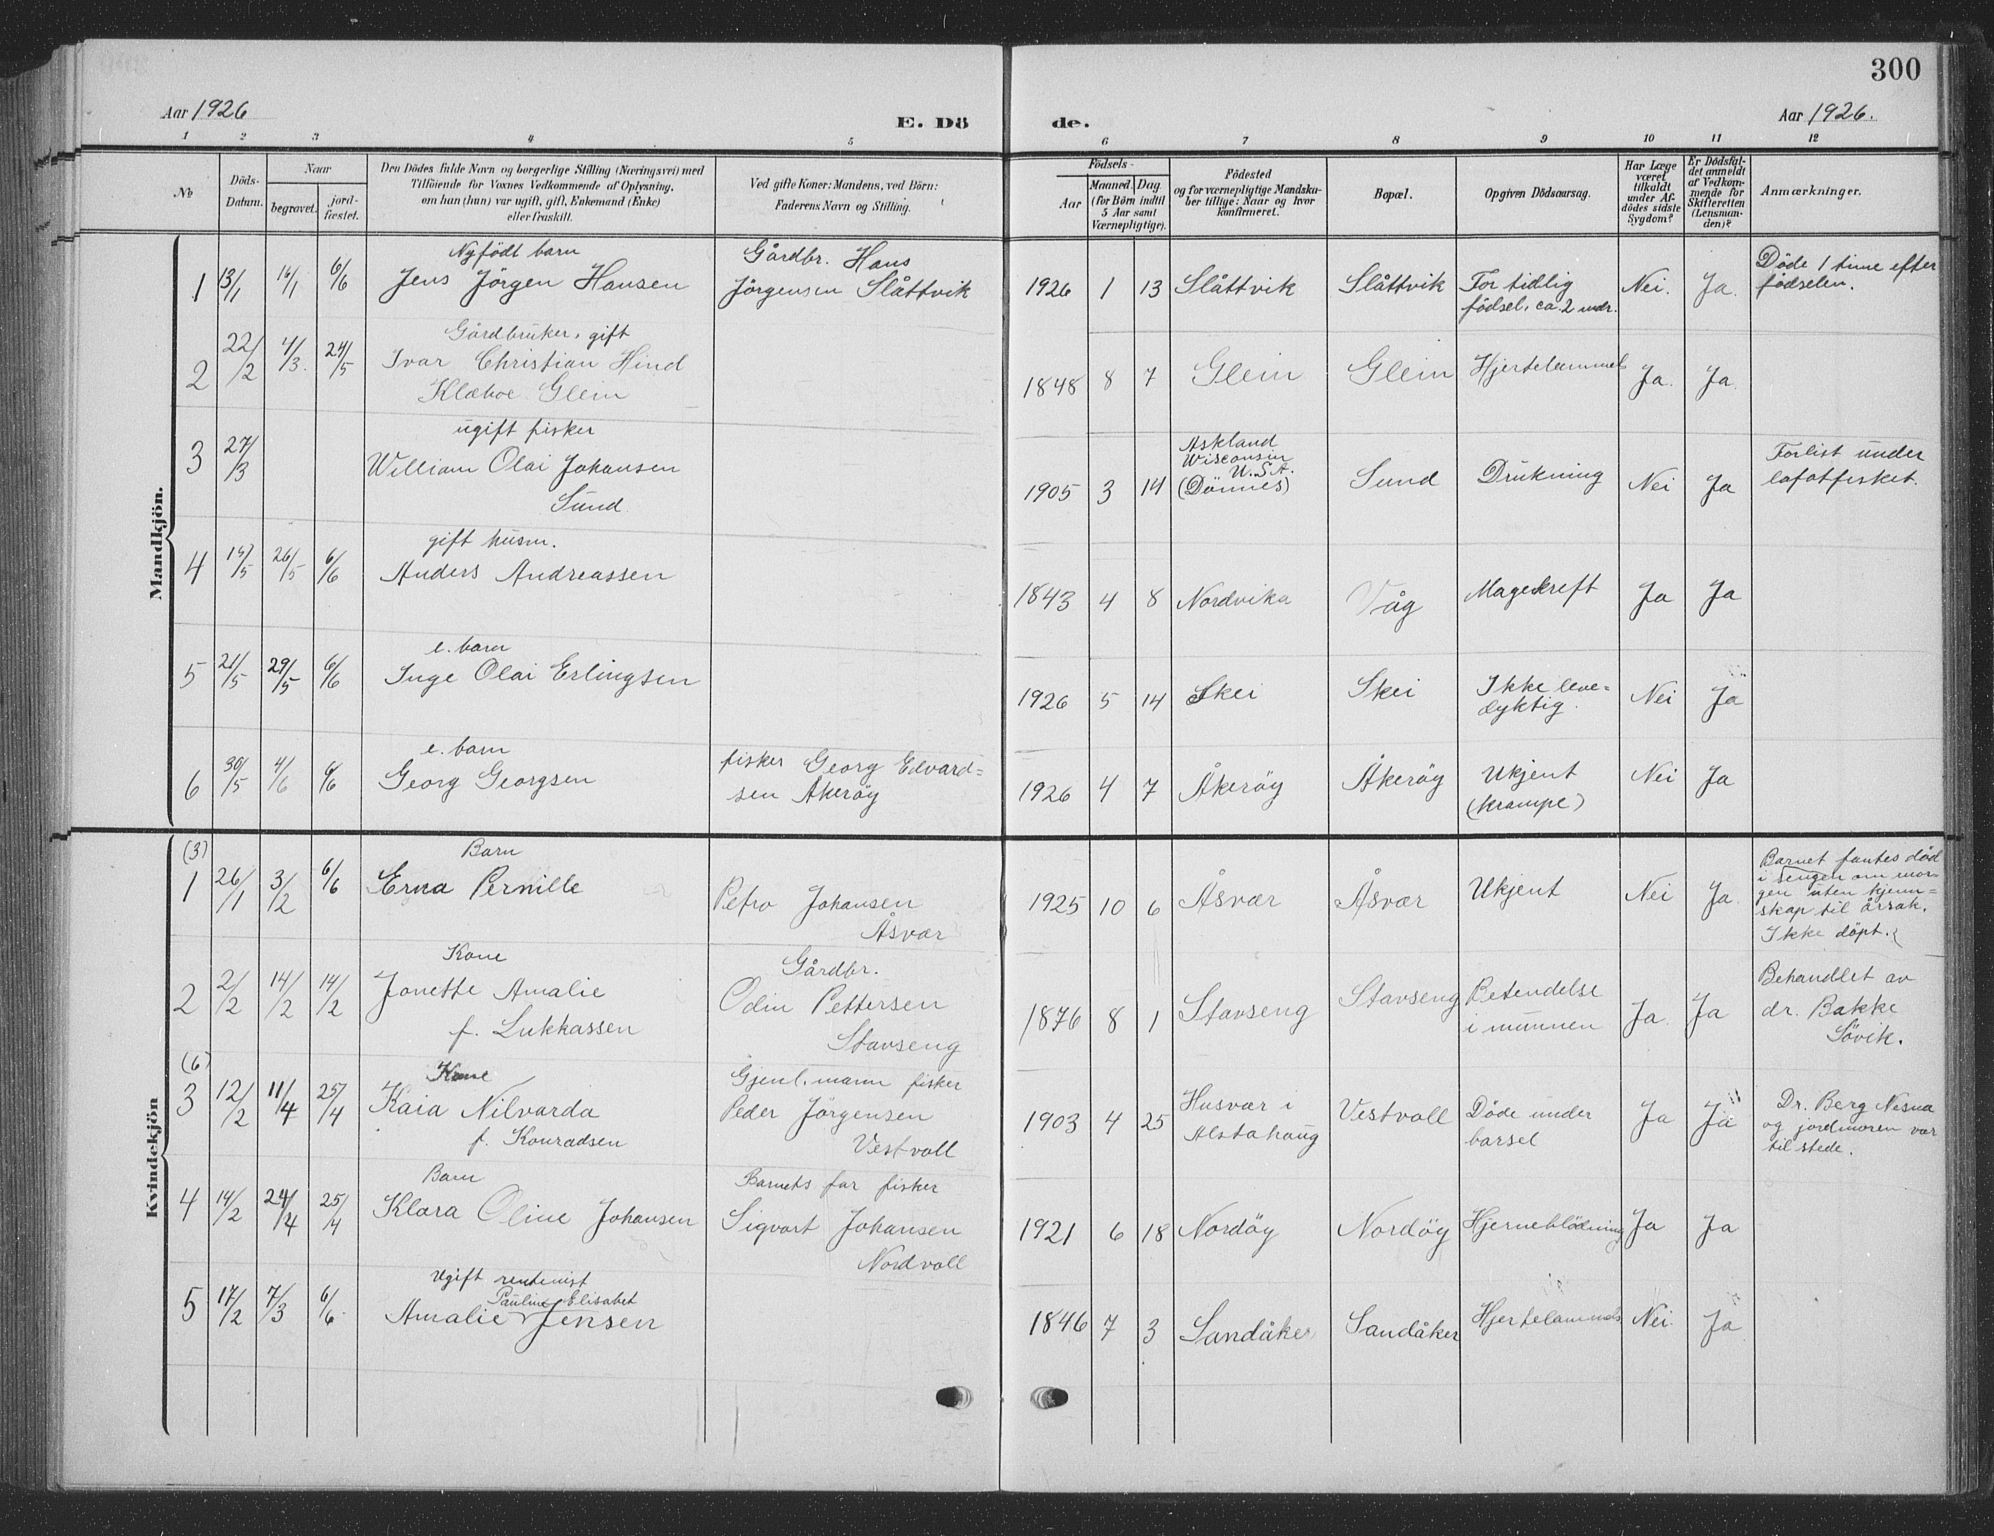 300
Aar 1926
E. Dö
de.
Aar 1926.
1 2 3 4 5 6 7 8 9 10 11 12
No
Döds-Datum.
Naar
begravet.
jord-fæstet.
Den Dödes fulde Navn og borgerlige Stilling (Næringsvei) med
Tilföiende for Voxnes Vedkommende af Oplysning,
om han (hun) var ugift, gift, Enkemand (Enke)
eller fraskilt.
Ved gifte Koner: Mandens, ved Börn:
Faderens Navn og Stilling.
Födsels-
Aar
Maaned. Dag
(for Börn indtil
5 Aar samt
Værnepligtige).
Födested
og for værnepligtige Mandska-
ber tillige: Naar og hvor
konfirmeret.
Bopæl.
Opgiven Dödsaarsag.
Har Læge
været
tilkaldt
under Af-
dödes sidste
Sygdom?
Er Dödsfal-
det anmeldt
af Vedkom-
mende for
Skifteretten
(Lensman-
den)?
Anmærkninger.
Mandkjön.
Nyfödt barn
Gårdbr. Hans
1 13/1 16/1 6/6 Jens Jörgen Hansen Jörgensen Slåttvik 1926 1 13 Slåttvik Slåttvik For tidlig Nei. Ja. Döde 1 time efter
födsel, ca. 2 mdr.
födselen.
Gårdbruker, gift
2 22/2 4/3. 24/5 Ivar Christian Hind
Klæboe Glein 1848 8 7 Glein Glein Hjertelammel Ja. Ja.
ugift fisker
3 27/3 William Olai Johansen
Sund
1905 3 14 Askland
Wisconsin
U.S.A.
(Dönnes) Sund Drukning Nei Ja Forlist under
lofotfisket.
gift husm.
4 15/5 26/5 6/6 Anders Andreassen 1843 4 8 Nordvika Våg Magekreft Ja Ja
e. barn
5 21/5 29/5 6/6 Inge Olai Erlingsen 1926 5 14 Skei Skei Ikke leve=
dyktig. Nei Ja
e. barn
6 30/5 4/6 6/6 Georg Georgsen fisker Georg Edvard=
sen Åkeröy 1926 4 7 Åkeröy Åkeröy Ukjent
(krampe) Nei Ja
Kvindekjön
(3)
Barn
1 26/1 3/2 6/6 Erna Pernille Petro Johansen
Åsvær 1925 10 6 Åsvær Åsvær Ukjent Nei Ja Barnet fantes död
i sengen om mor-
gen uten kjenn=
skap til årsak.
Ikke döpt.
Kone
Gårdbr.
2 2/2 14/2 14/2 Jonette Amalie
f. Lukkassen Odin Pettersen
Stavseng 1876 8 1 Stavseng Stavseng Betendelse
i munnen Ja. Ja Behandlet av
dr. Bakke
Sövik.
(6)
Kone
Gjenl. mann fisker
3 12/2 11/4 25/4 Kaia Nilvarda
f. Konradsen Peder Jörgensen
Vestvoll 1903 4 25 Husvær i
Alstahaug Vestvoll Döde under
barsel Ja Ja Dr. Berg Nesna
og jordmoren var
til stede.
Barn
Barnets far fisker
4 14/2 24/4 25/4 Klara Oline Johansen Sigvart Johansen
Nordvoll 1921 6 18 Nordöy Nordöy Hjerneblödning Ja Ja
Ugift rentenist
Pauline Elisabet
5 17/2 7/3 6/6 Amalie Jensen 1846 7 3 Sandåker Sandåker Hjertelammels Nei. Ja